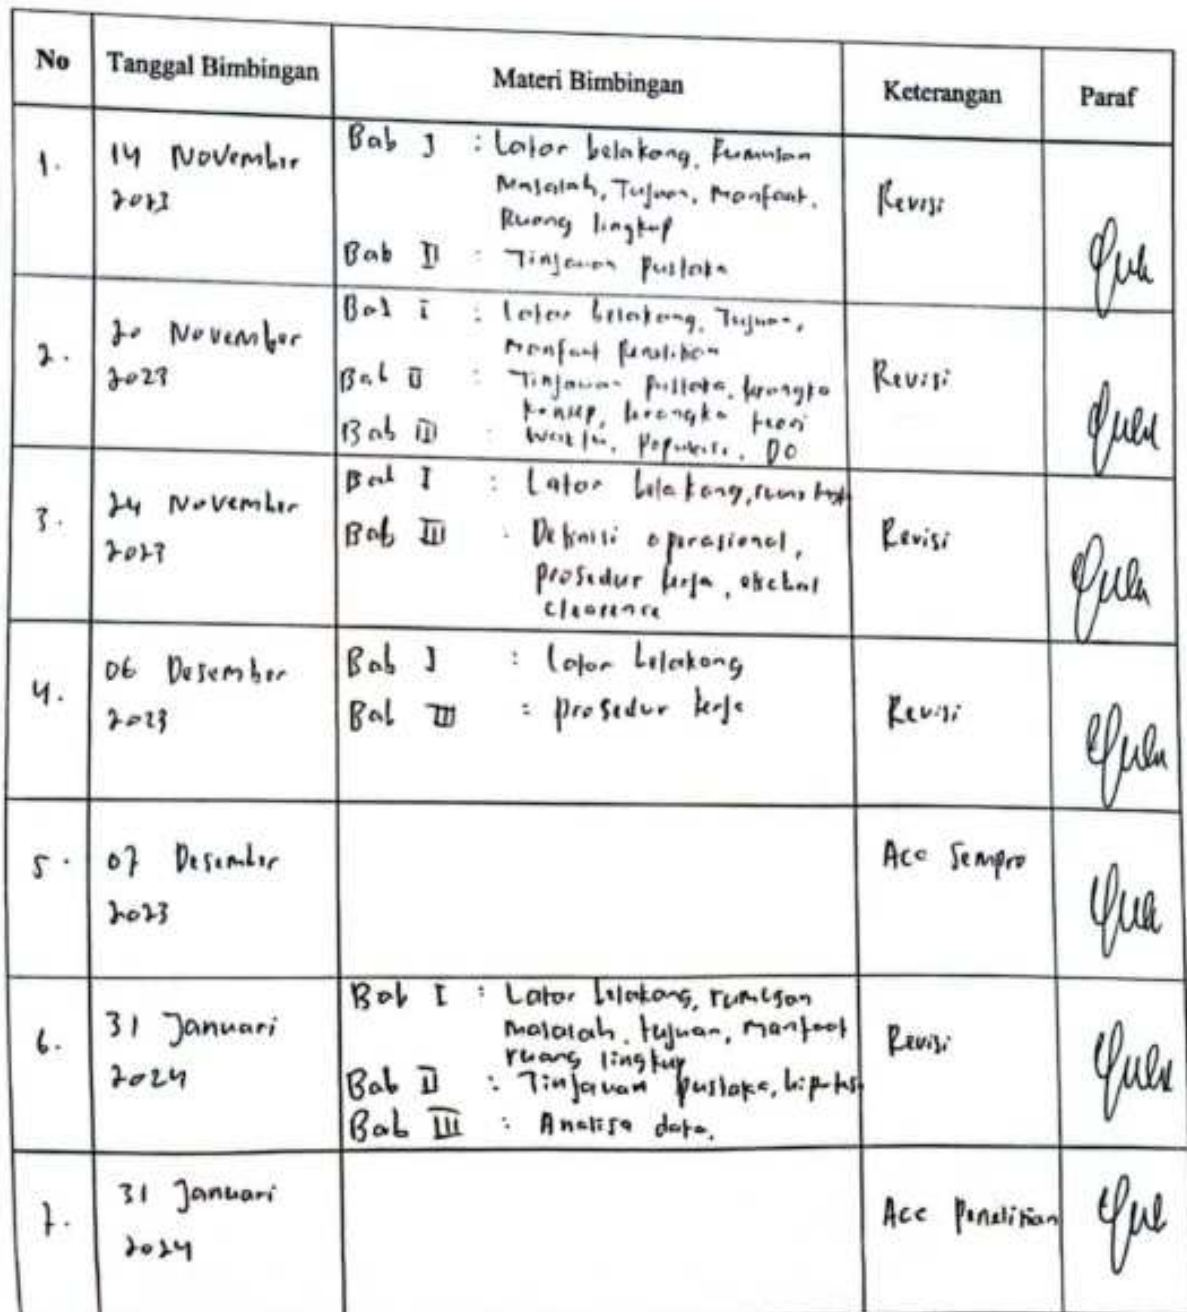 No Tanggal Bimbingan Materi Bimbingan Keterangan Paraf
1. 14 November 2023
Bab I : Latar belakang, Rumusan
Masalah, Tujuan, Manfaat,
Ruang lingkup
Bab II : Tinjauan pustaka
Revisi
2. 20 November 2023
Bab I : Latar belakang, Tujuan,
Manfaat Penelitian
Bab II : Tinjauan pustaka, kerangka
konsep, kerangka teori
Bab III : Waktu, Populasi, DO
Revisi
3. 24 November 2023
Bab I : Latar belakang,
Bab III : Definisi operasional,
prosedur kerja,
clearence
Revisi
4. 06 Desember 2023
Bab I : Latar belakang
Bab III : prosedur kerja
Revisi
5. 07 Desember 2023
Acc Sempro
6. 31 Januari 2024
Bab I : Latar belakang, rumusan
masalah, tujuan, manfaat
ruang lingkup
Bab II : Tinjauan pustaka,
Bab III : Analisa data.
Revisi
7. 31 Januari 2024
Acc Penelitian